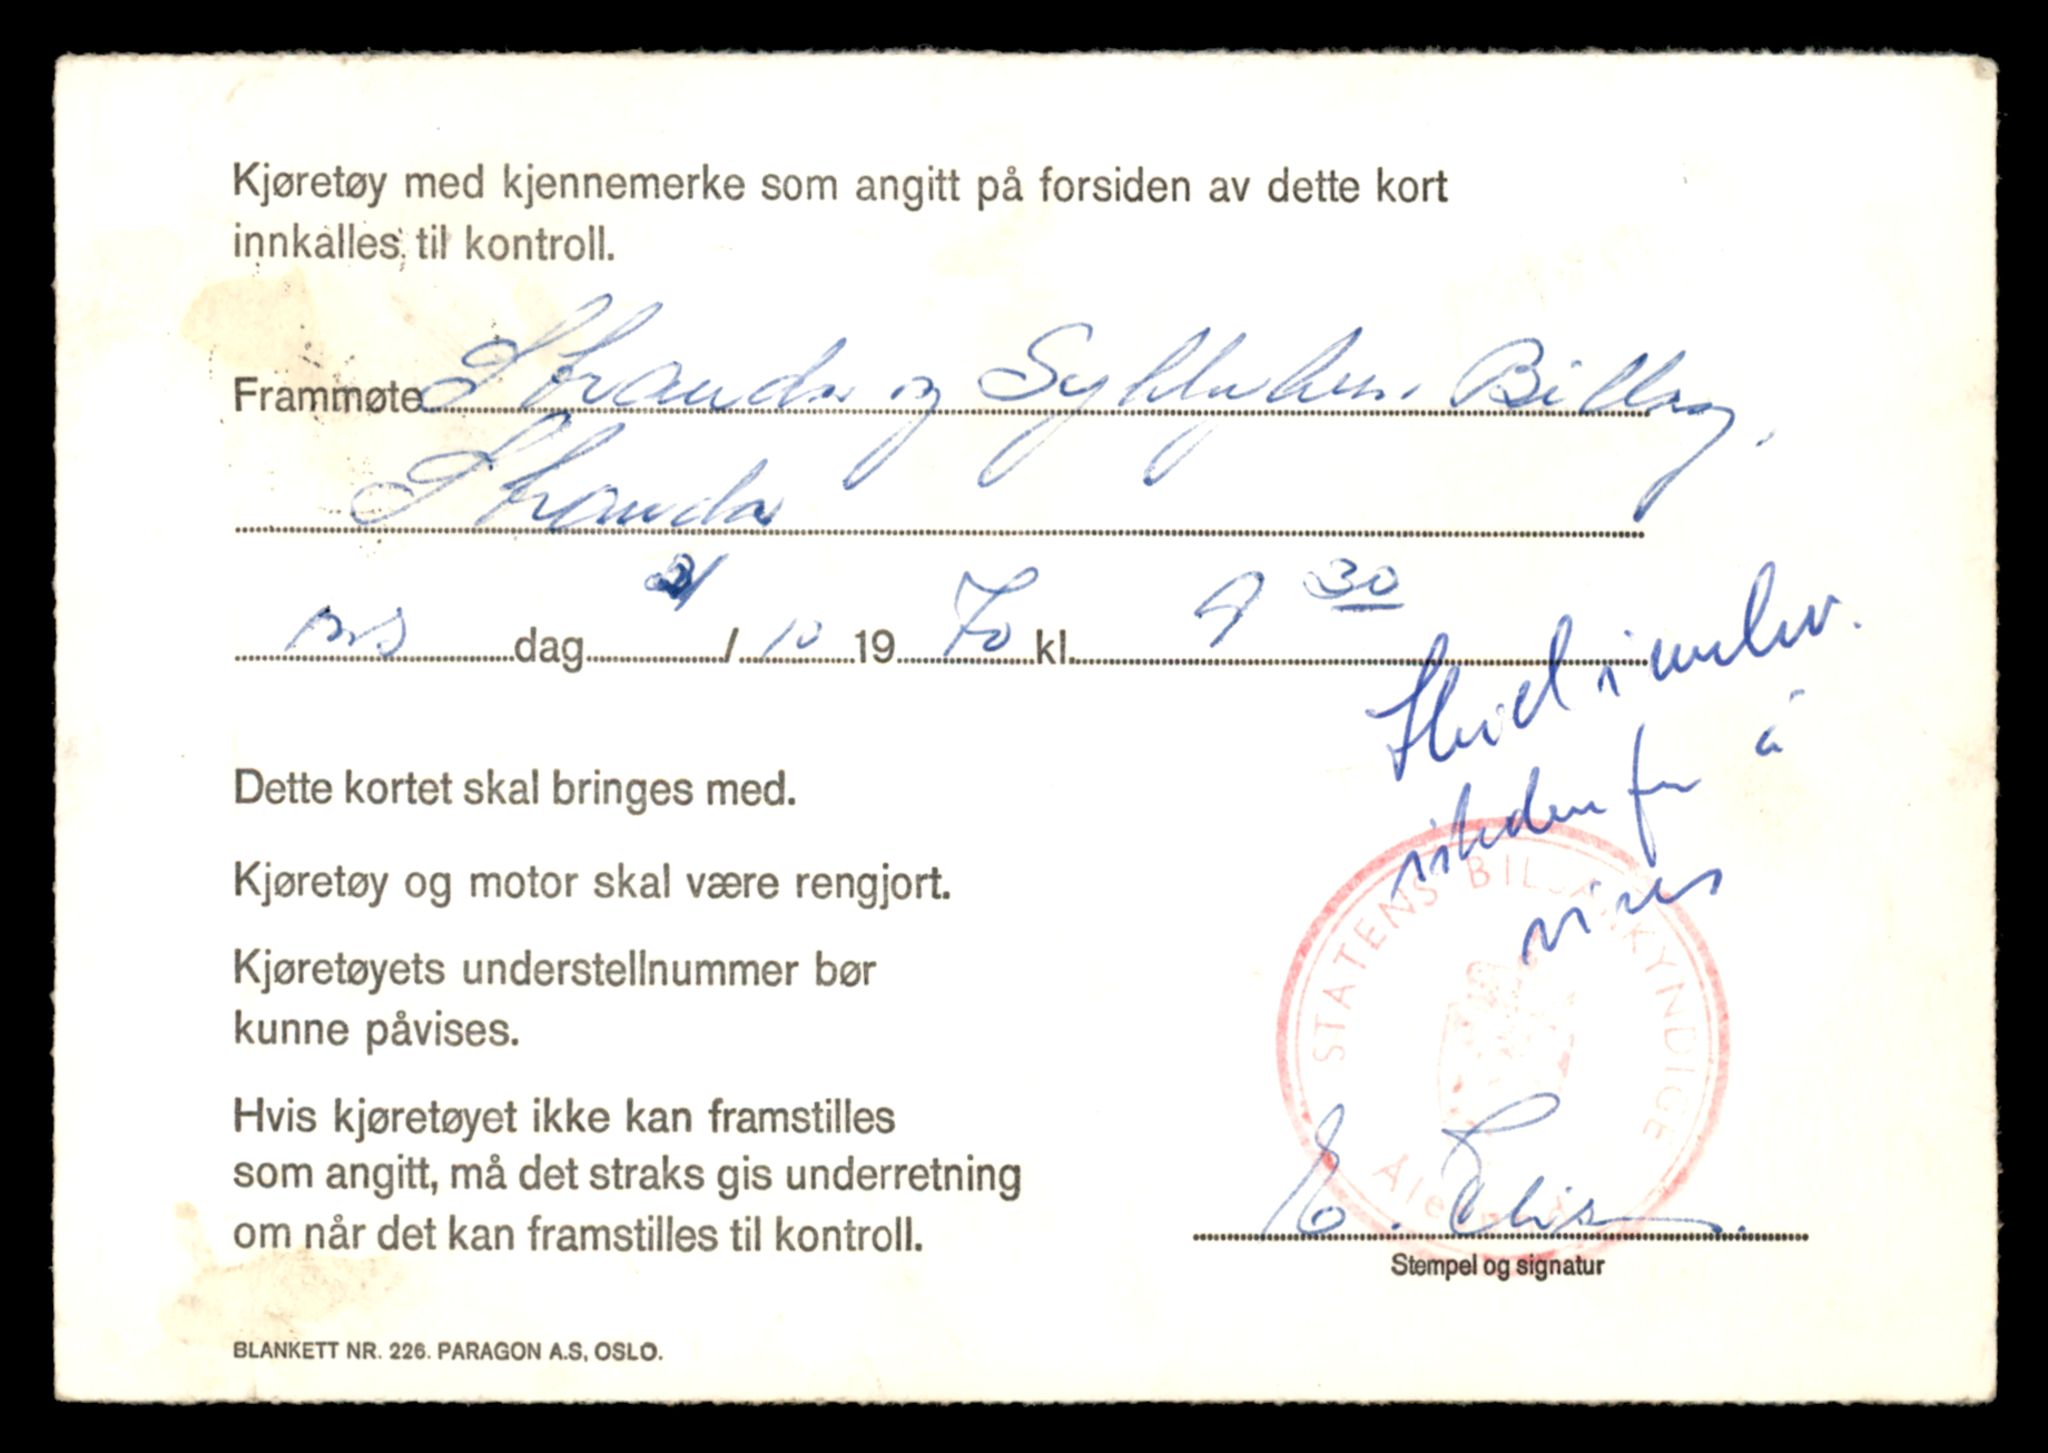 Kjøretøy med kjennemerke som angitt på forsiden av dette kort
innkalles til kontroll.
Frammøte Stranda og Sykkylven Billag,
Stranda
ons dag 21/10 19 70 kl. 9 30
Dette kortet skal bringes med.
Kjøretøy og motor skal være rengjort.
Kjøretøyets understellnummer bør
kunne påvises.
Hvis kjøretøyet ikke kan framstilles
som angitt, må det straks gis underretning
om når det kan framstilles til kontroll.
å
STATENS BILSAKKYNDIGE
E.
Stempel og signatur
BLANKETT NR. 226. PARAGON A.S, OSLO.